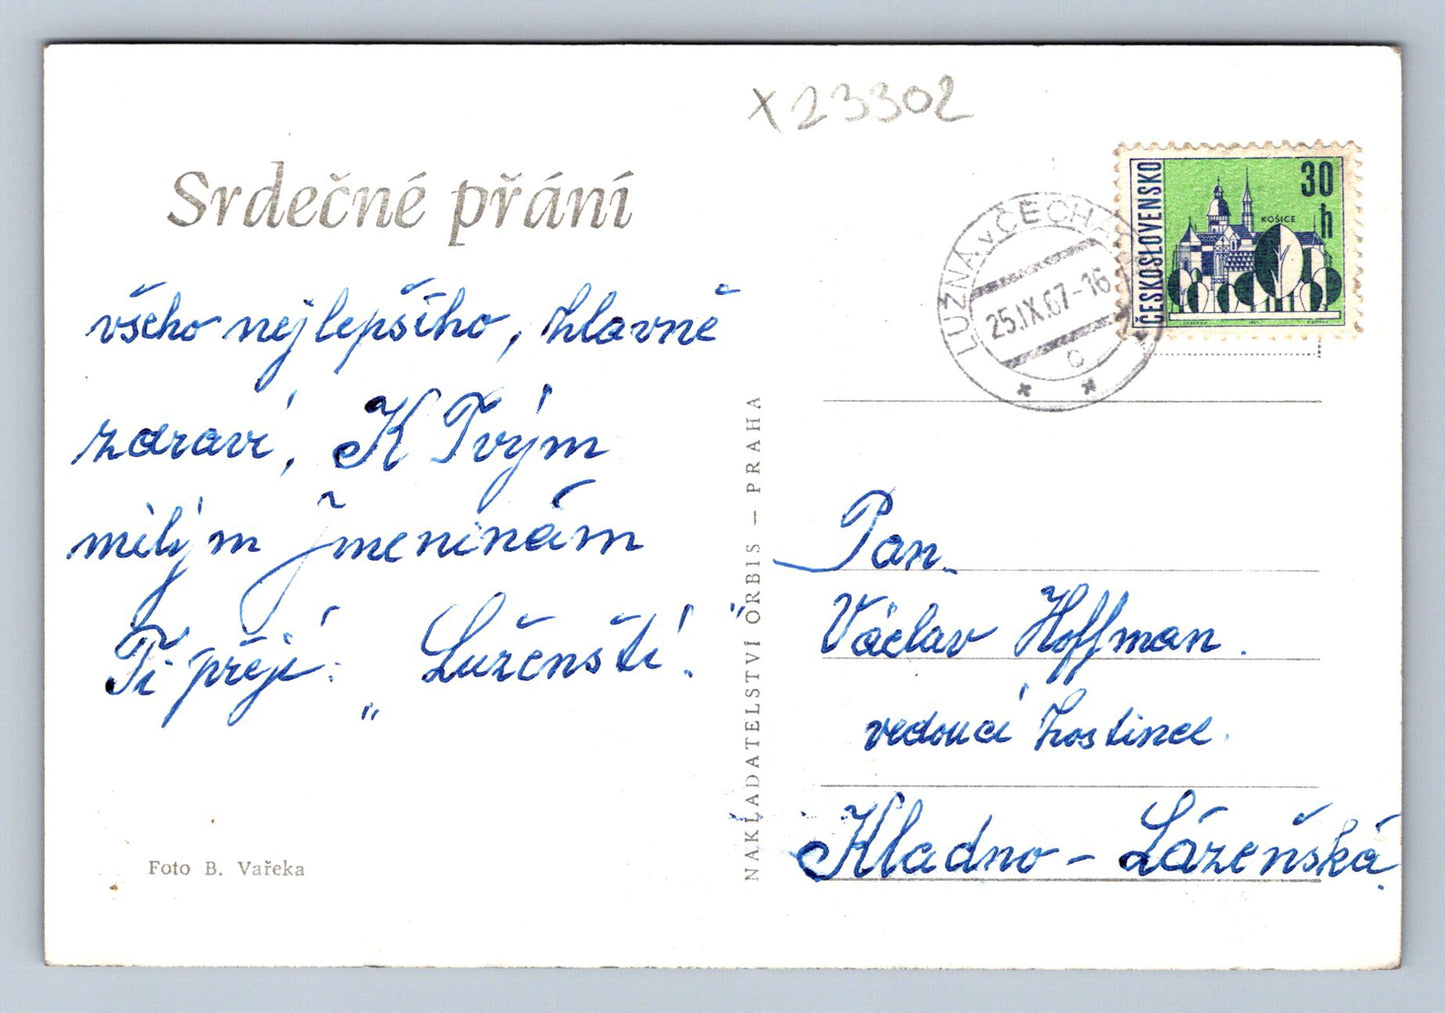 x23302
Srdečné přání
všeho nejlepšího, hlavně
zdraví, K Tvým
milým jmeninám
Ti přejí: „Luženští."
Foto B. Vařeka
NAKLADATELSTVÍ ORBIS – PRAHA
LUŽNÁ v ČECHÁCH
25.IX.67-16
c
ČESKOSLOVENSKO
30 h
KOŠICE
Pan
Václav Hoffman.
vedoucí hostince.
Kladno – Lázeňská